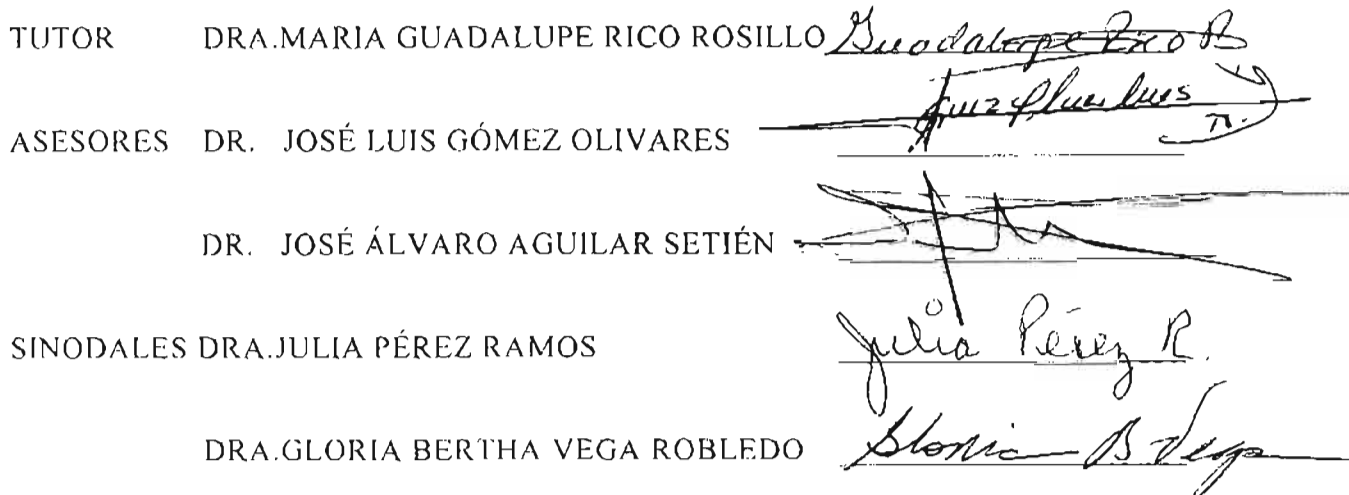 TUTOR DRA.MARIA GUADALUPE RICO ROSILLO Guadalupe Rico R
ASESORES DR. JOSÉ LUIS GÓMEZ OLIVARES
DR. JOSÉ ÁLVARO AGUILAR SETIÉN
SINODALES DRA.JULIA PÉREZ RAMOS Julia Pérez R.
DRA.GLORIA BERTHA VEGA ROBLEDO Gloria B Vega